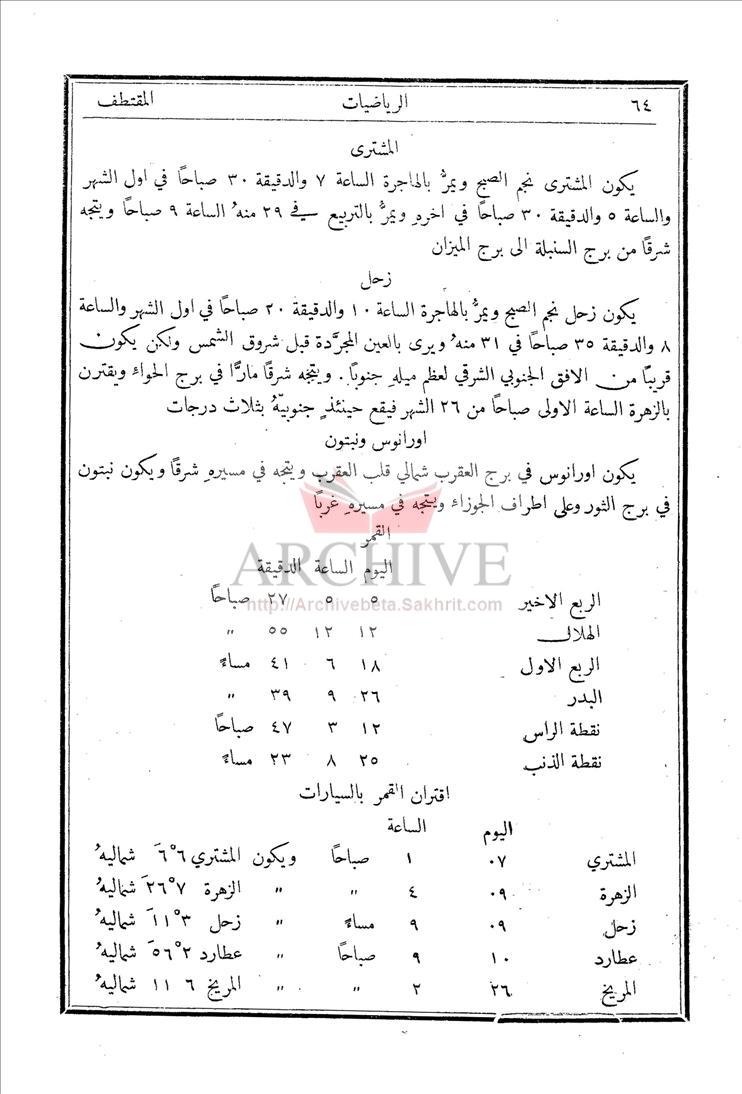 ٦٤ الرياضيات المقتطف
المشترى
يكون المشترى نجم الصبح ويمرُّ بالهاجرة الساعة ٧ والدقيقة ٣٠ صباحًا في اول الشهر
والساعة ٥ والدقيقة ٣٠ صباحًا في اخرهِ ويمرُّ بالتربيع في ٢٩ منهُ الساعة ٩ صباحًا ويتجه
شرقًا من برج السنبلة الى برج الميزان
زحل
يكون زحل نجم الصبح ويمرُّ بالهاجرة الساعة ١٠ والدقيقة ٢٠ صباحًا في اول الشهر والساعة
٨ والدقيقة ٣٥ صباحًا في ٣١ منهُ ويرى بالعين المجرَّدة قبل شروق الشمس ولكن يكون
قريبًا من الافق الجنوبي الشرقي لعظم ميلهِ جنوبًا . ويتجه شرقًا مارًّا في برج الحواء ويقترن
بالزهرة الساعة الاولى صباحًا من ٢٦ الشهر فيقع حينئذٍ جنوبيّهُ بثلاث درجات
اورانوس ونبتون
يكون اورانوس في برج العقرب شمالي قلب العقرب ويتجه في مسيرهِ شرقًا ويكون نبتون
في برج الثور وعلى اطراف الجوزاء ويتجه في مسيرهِ غربًا
القمر
ARCHIVE
اليوم الساعة الدقيقة
http://Archivebeta.Sakhrit.com
الربع الاخير ٥ ٥ ٢٧ صباحًا
الهلال ١٢ ١٢ ٥٥ "
الربع الاول ١٨ ٦ ٤١ مساءً
البدر ٢٦ ٩ ٣٩ "
نقطة الراس ١٢ ٣ ٤٧ صباحًا
نقطة الذنب ٢٥ ٨ ٢٣ مساءً
اقتران القمر بالسيارات
اليوم الساعة
المشتري ٠٧ ١ صباحًا ويكون المشتري ٦° ٦َ شماليهُ
الزهرة ٠٩ ٤ " " الزهرة ٧° ٢٦َ شماليهُ
زحل ٠٩ ٩ مساءً " زحل ٣° ١١َ شماليهُ
عطارد ١٠ ٩ صباحًا " عطارد ٢° ٥٦َ شماليهُ
المريخ ٢٦ ٢ " " المريخ ٦ ١١ شماليهُ